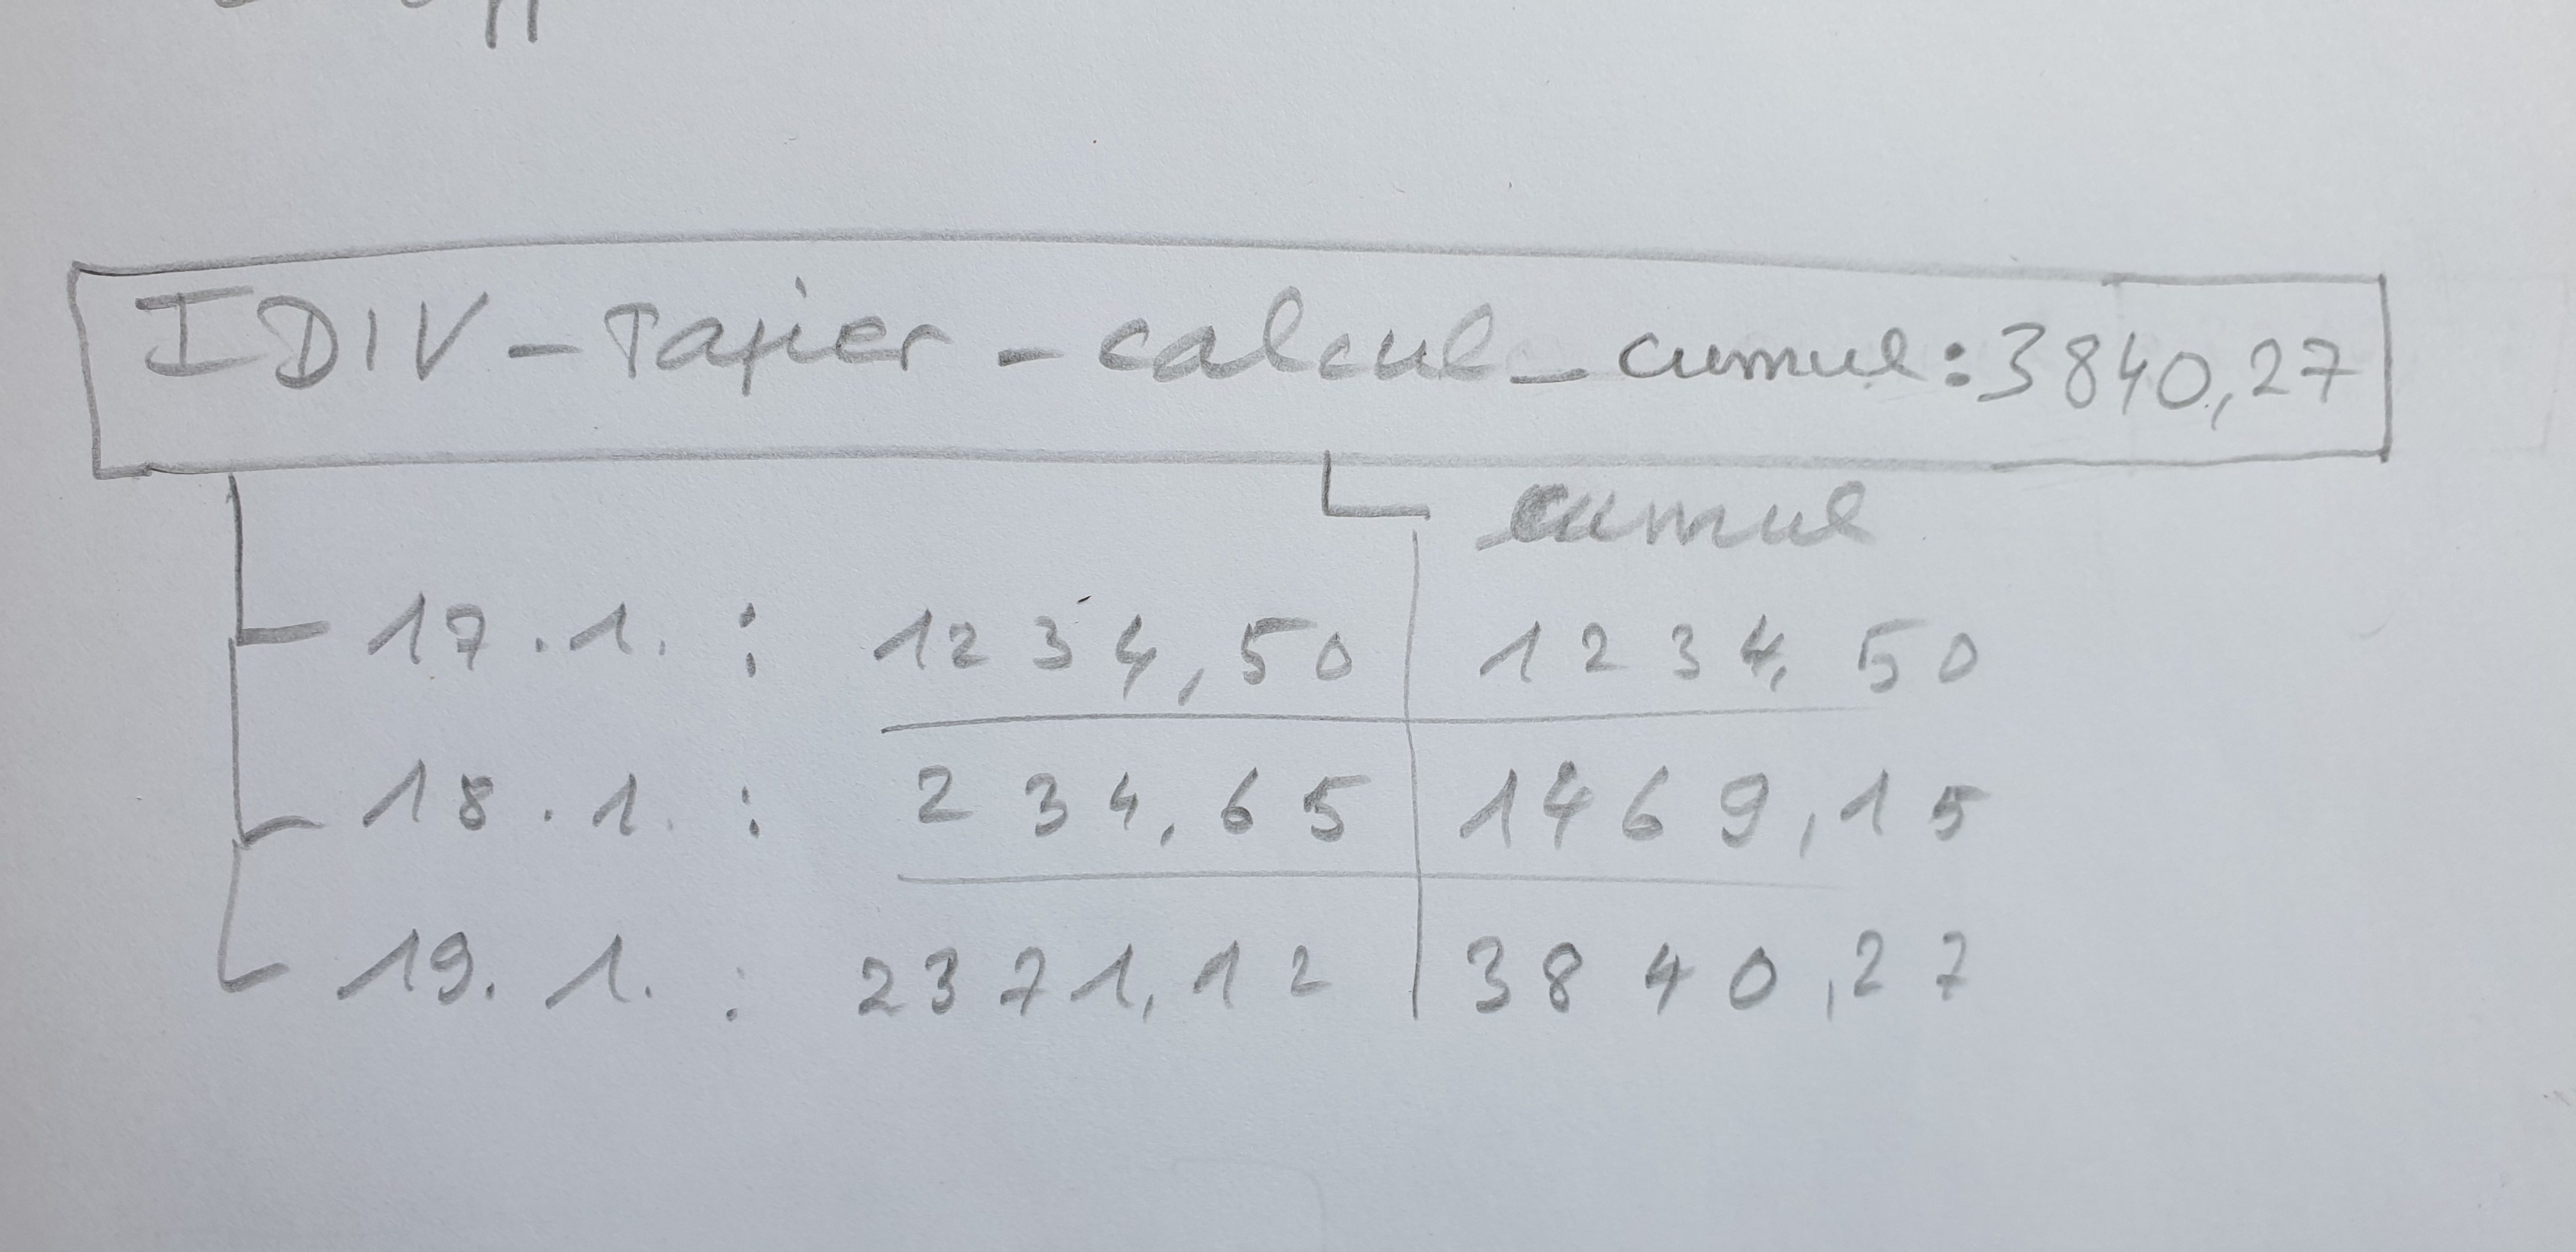 IDIV-Papier-calcul_cumul:3840,27
cumul
17.1. : 1234,50 1234,50
18.1. : 234,65 1469,15
19.1. : 2371,12 3840,27